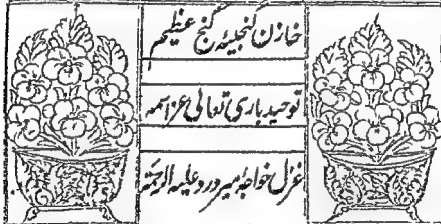 خازن گنجینۂ گنج عظیم
توحید باری تعالیٰ عز اسمہ
غزل خواجہ میر درد علیہ الرحمۃ